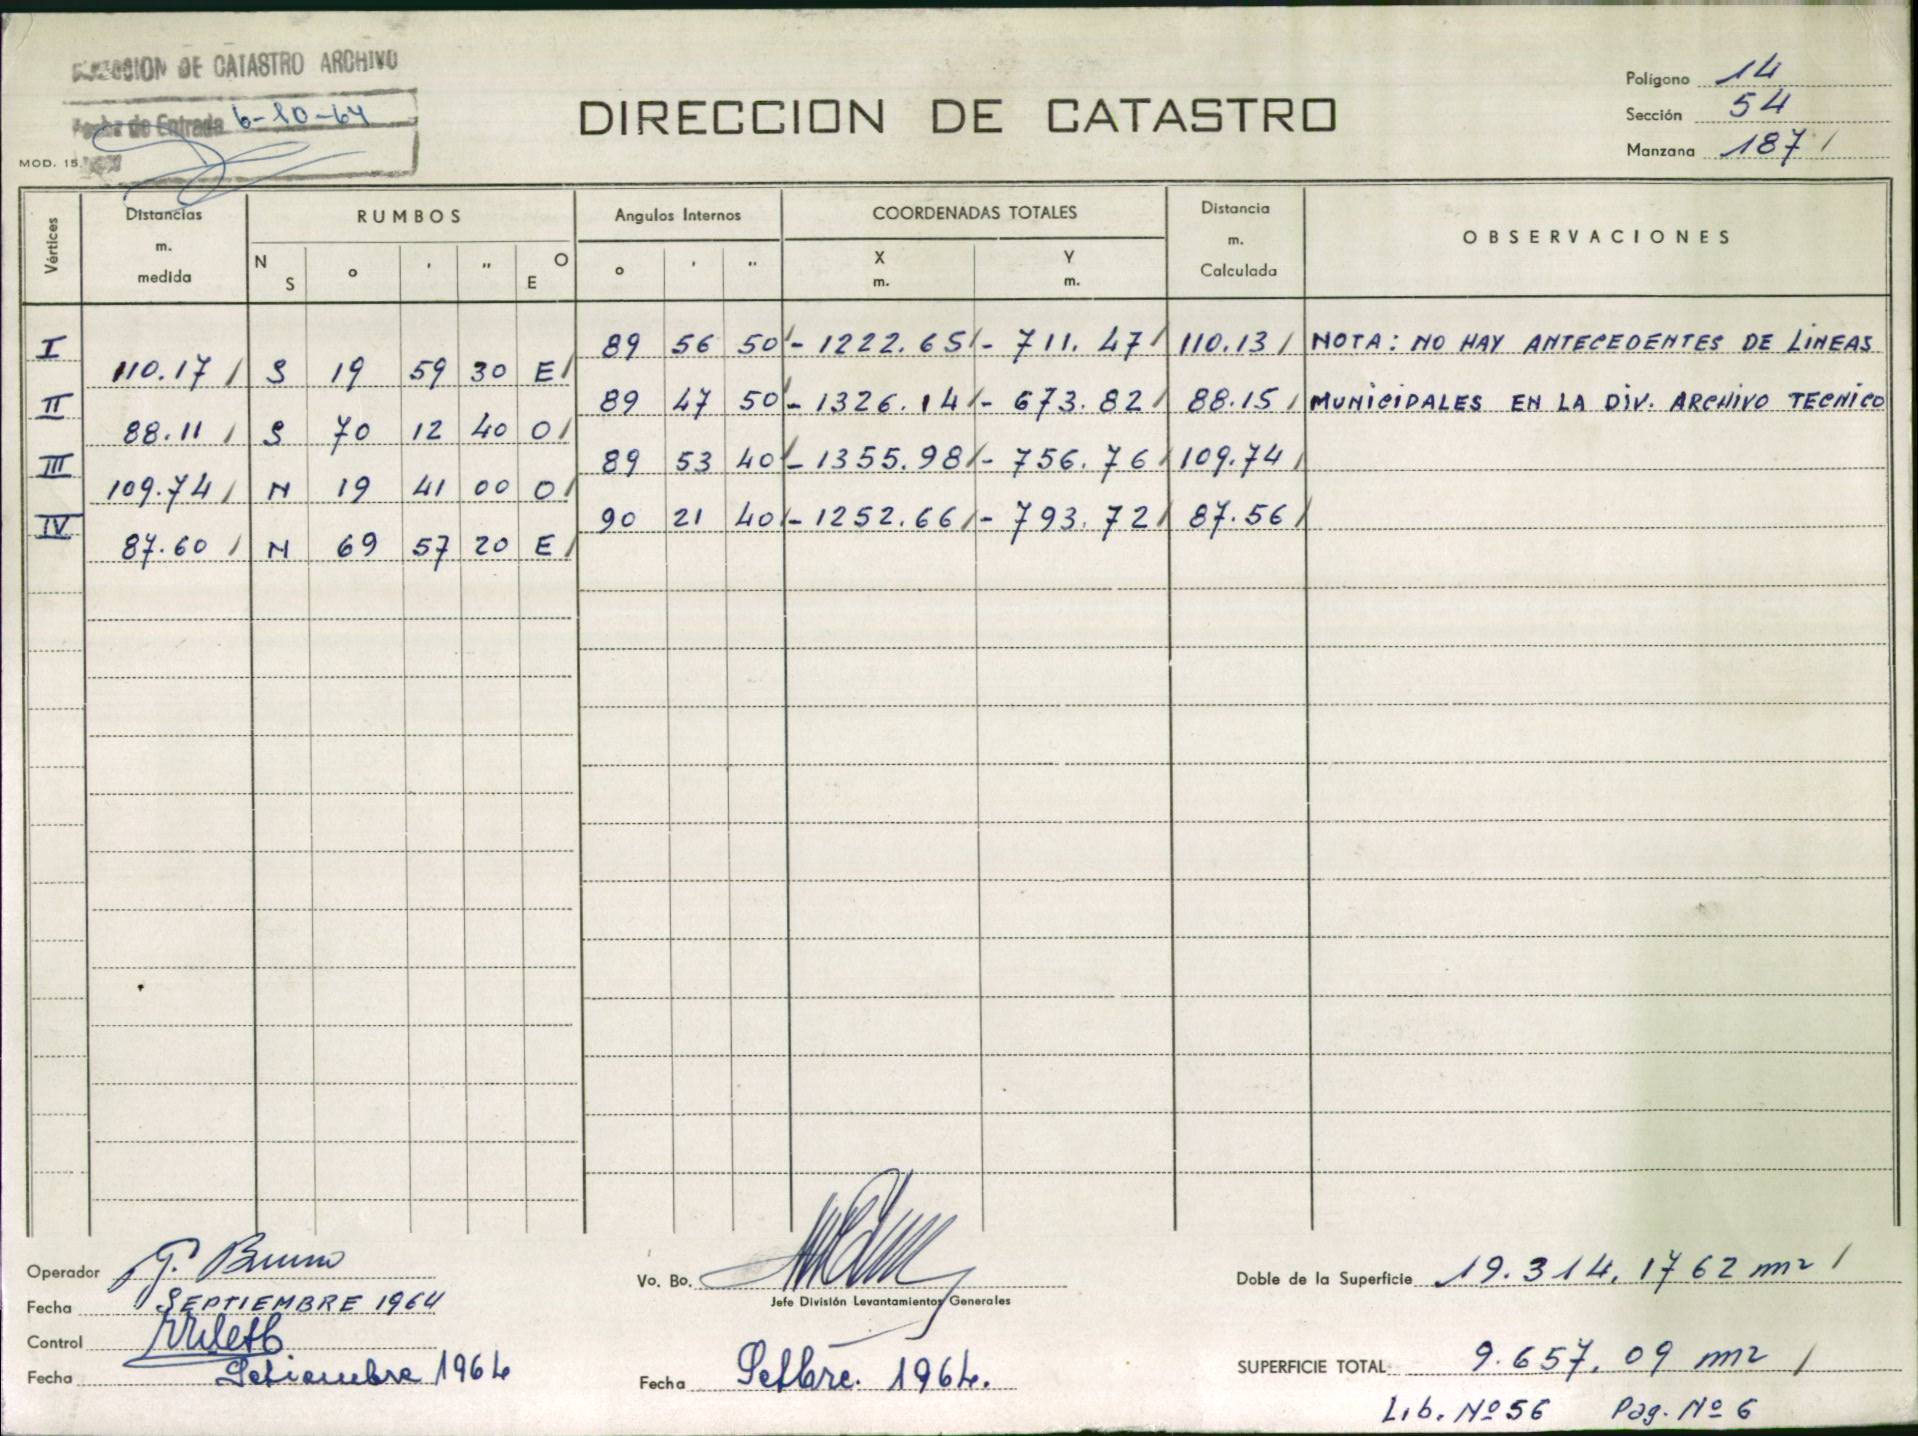 DIRECCION DE CATASTRO ARCHIVO
Fecha de Entrada 6-10-64
MOD. 15
DIRECCION DE CATASTRO
Polígono 14
Sección 54
Manzana 187 /
Vértices
Distancias m. medida
RUMBOS
N S ° ' " O E
Angulos Internos
° ' "
COORDENADAS TOTALES
X m. Y m.
Distancia m. Calculada
OBSERVACIONES
I 89 56 50 / - 1222.65 / - 711.47 / 110.13 / NOTA: NO HAY ANTECEDENTES DE LINEAS
110.17 / S 19 59 30 E /
II 89 47 50 / - 1326.14 / - 673.82 / 88.15 / MUNICIPALES EN LA DIV. ARCHIVO TECNICO
88.11 / S 70 12 40 O /
III 89 53 40 / - 1355.98 / - 756.76 / 109.74 /
109.74 / N 19 41 00 O /
IV 90 21 40 / - 1252.66 / - 793.72 / 87.56 /
87.60 / N 69 57 20 E /
Operador G. Bruno
Fecha SEPTIEMBRE 1964
Control
Fecha Setiembre 1964
Vo. Bo.
Jefe División Levantamientos Generales
Fecha Setbre. 1964.
Doble de la Superficie 19.314,1762 m2 /
SUPERFICIE TOTAL 9.657,09 m2 /
Lib. Nº 56 Pag. Nº 6